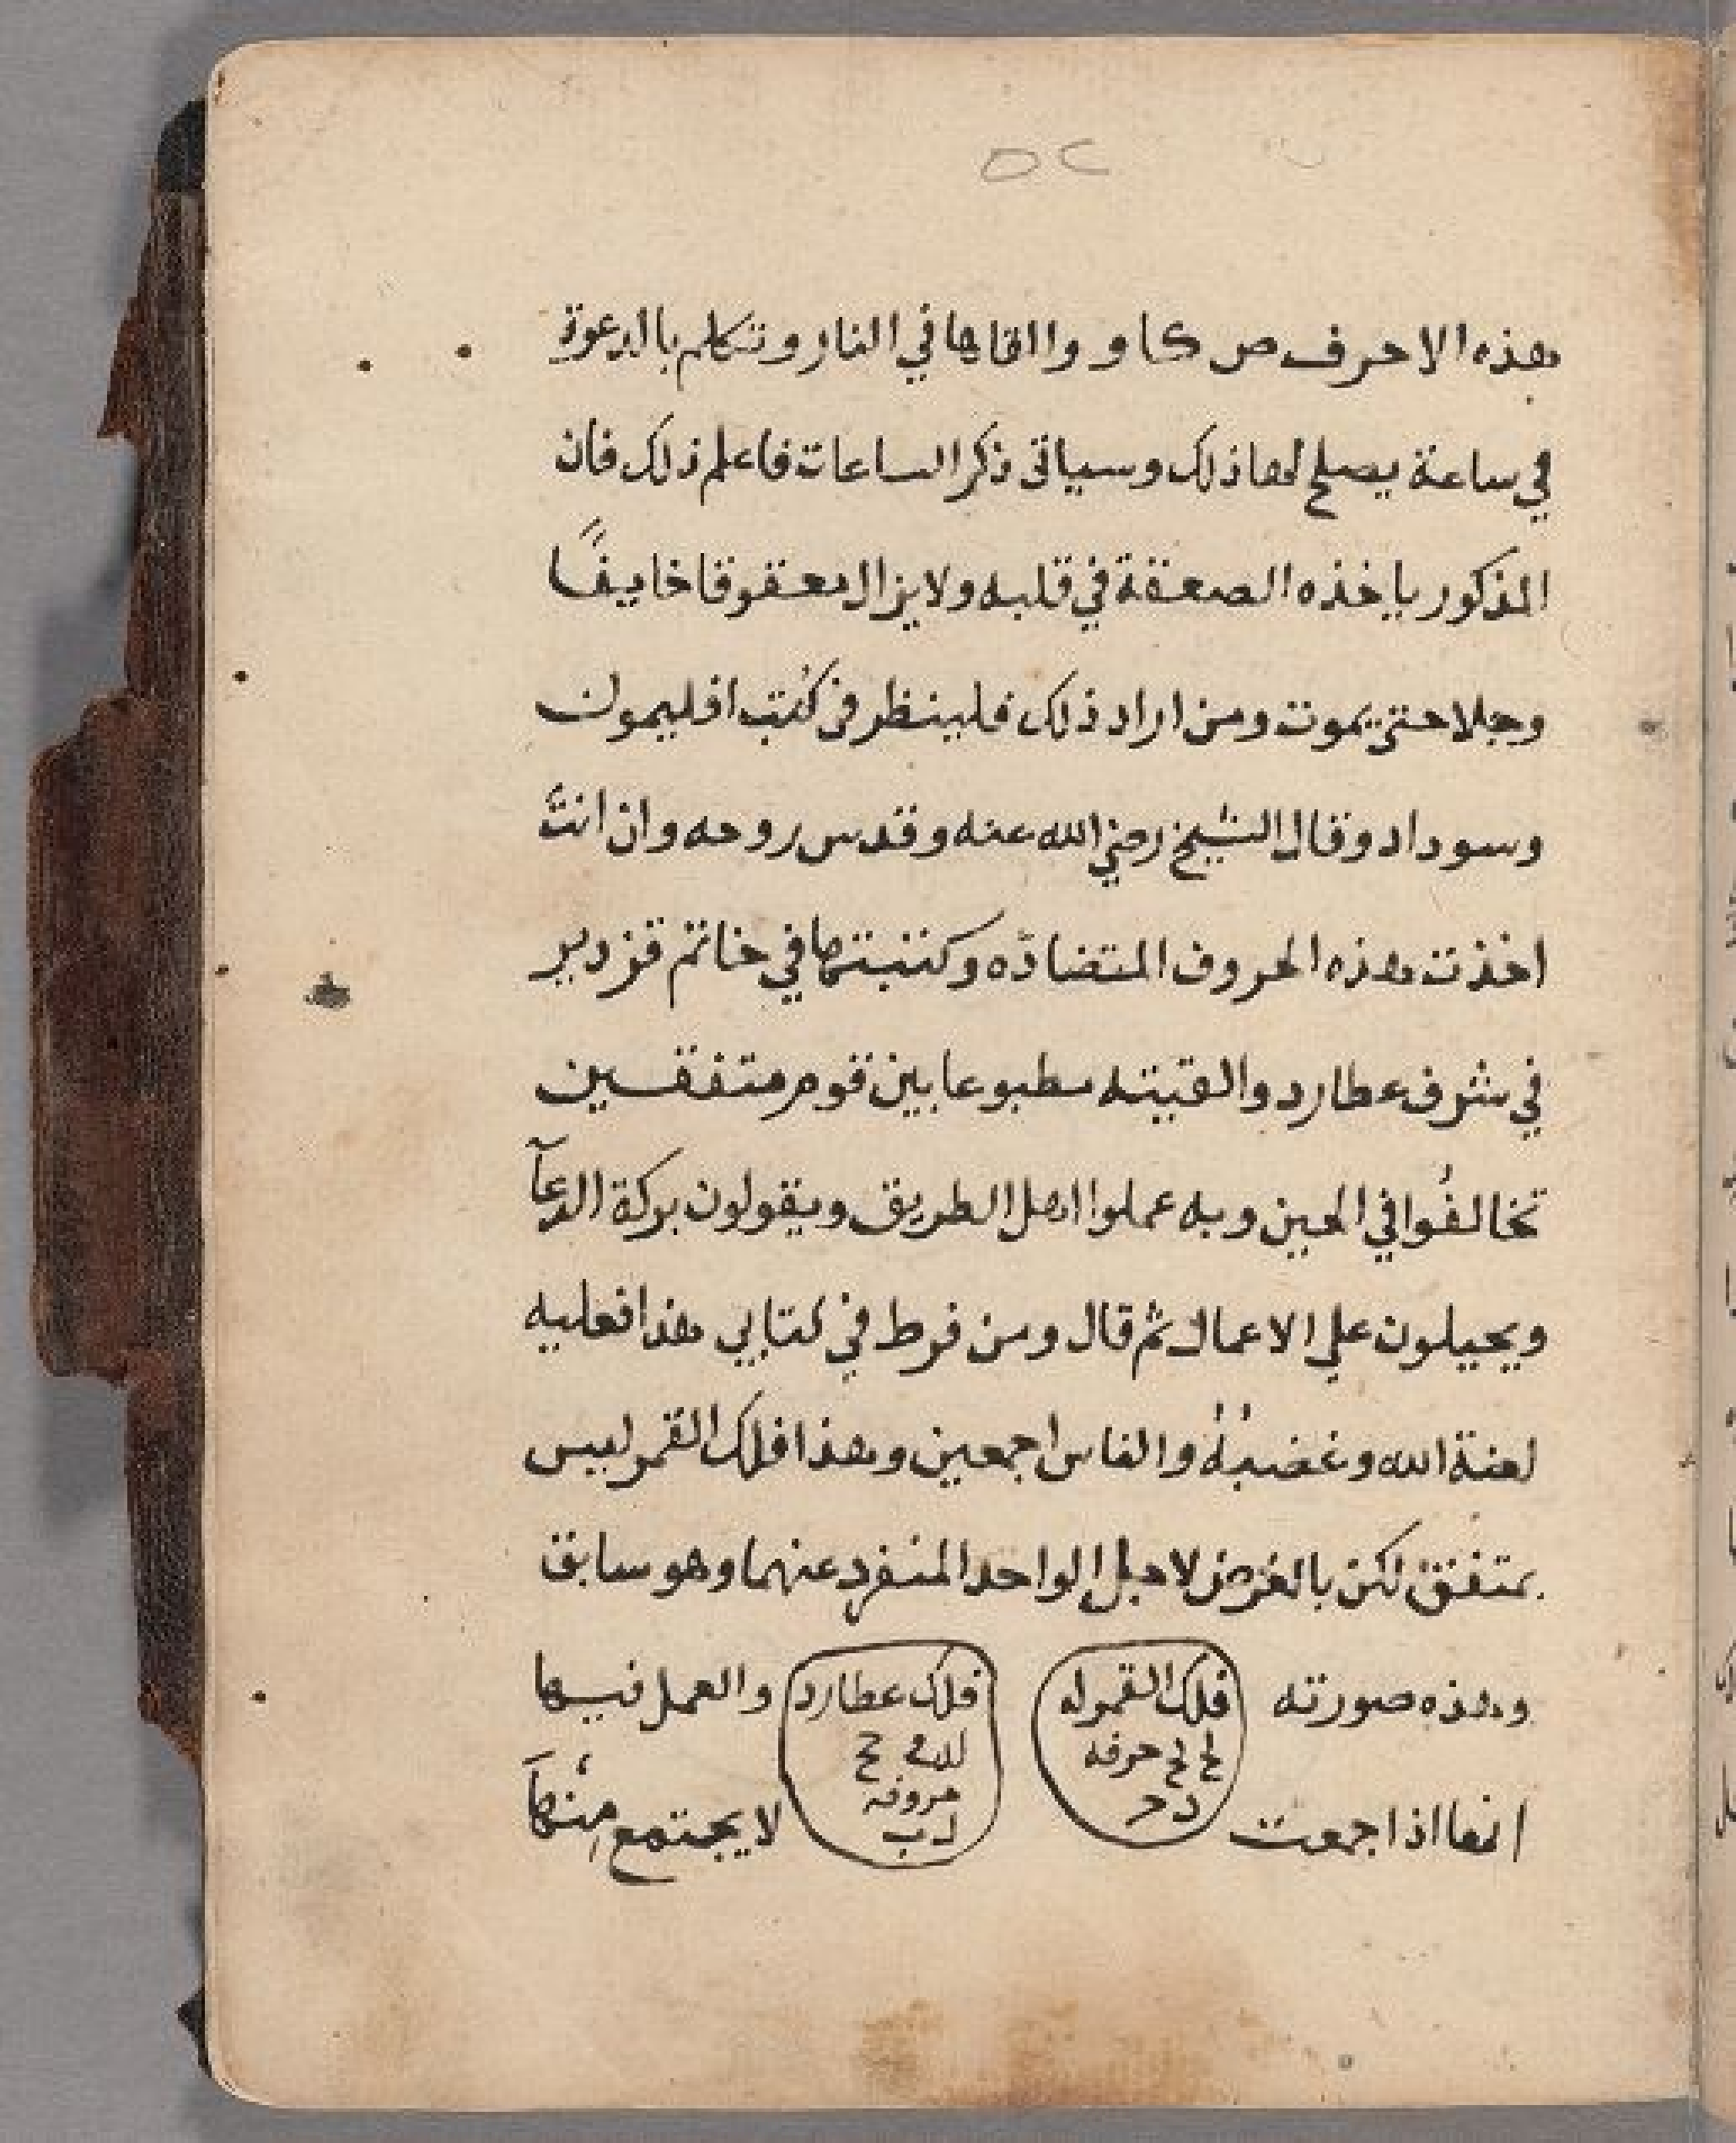 ٥٢
هذه الاحرف ص ك ا و والقاها في النار وتتكلم بالدعوة
في ساعة يصلح لها ذلك وسياتى ذكر الساعات فاعلم ذلك فان
المذكور ياخذه الصعقة في قلبه ولا يزال معقوقا خايفًا
وجلا حتى يموت ومن اراد ذلك فلينظر فى كُتب افليمون
وسوداد وقال الشيخ رضي الله عنه وقدس روحه وان انتَ
اخذت هذه الحروف المتضادّه وكتبتها في خاتم قزدير
في شرف عطارد والقيته مطبوعا بين قوم متفقين
تخالفُوا في الحين وبه عملوا اهل الطريق ويقولون بركة الدعآ
ويحيلون علي الاعمال ثم قال ومن فرط في كتابي هذا فعليه
لعنة الله وغضبُهُ والناس اجمعين وهذا فلك القمر ليس
بمتفق لكن بالغرض لاجل الواحد المنفرد عنهما وهو سابق
وهذه صورته فلك القمر له فلك عطارد والعمل فيها
ح ح حرفه
د ح
حروفه
د ب
انها اذا اجمعت لا يجتمع مِنْهَا